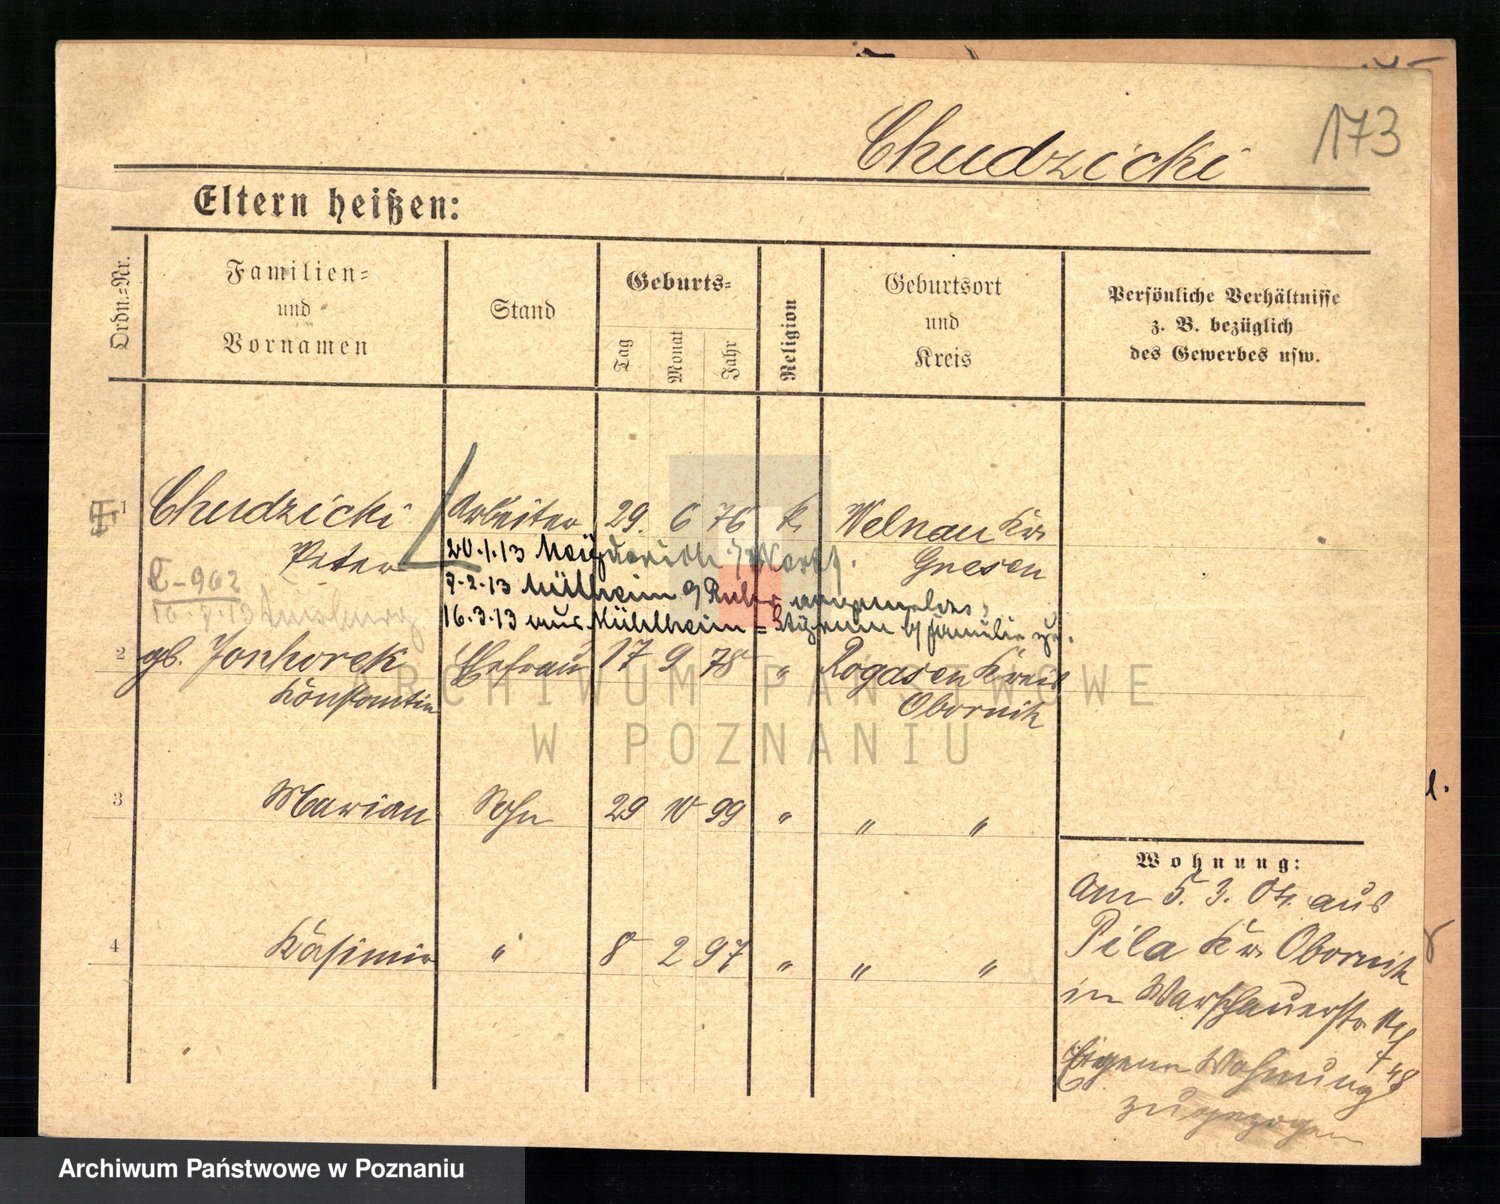 173
Chudzicki
Eltern heißen:
Ordn.=Nr.
Familien=
und
Vornamen
Stand
Geburts=
Tag
Monat
Jahr
Religion
Geburtsort
und
Kreis
Persönliche Verhältnisse
z. B. bezüglich
des Gewerbes usw.
1 Chudzicki Arbeiter 29. 6 76 k. Welnau Kr.
Peter Gnesen
20.1.13
E-902
7.2.13 Mülheim Ruhr
16.3.13 aus Mühlheim = Familie
2 gb. Ehefrau 17 9 78 " Rogasen Kreis
Konstantin Obornik
3 Marian Sohn 29 10 99 " " "
4 Kasimir " 8 2 97 " " "
Wohnung:
Am 5. 3. aus
Pila Kr. Obornik
in Warschauerstr
Eigene Wohnung
zugezogen
ARCHIWUM PAŃSTWOWE
W POZNANIU
Archiwum Państwowe w Poznaniu